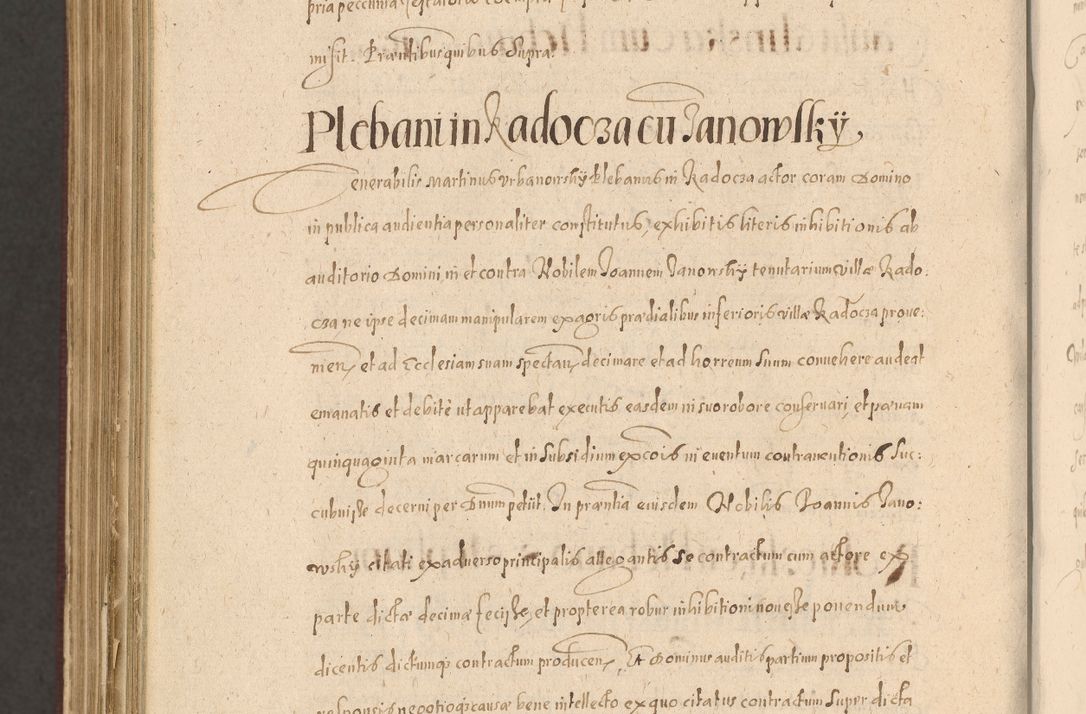 misit. Præsentibus quibus supra.
Plebani in Radocza cu Janowsky
Venerabilis Martinus Vrbanowsky Plebanus in Radocza actor coram Domino
in publica audientia personaliter constitutus, exhibitis literis inhibitionis ab
auditorio Domini, in et contra Nobilem Joannem Janowsky tenutarium villæ Rado:
cza, ne ipse decimam manipularem ex agris prædialibus inferioris villæ Radocza prove:
nien, et ad Ecclesiam suam spectan, decimare et ad horreum suum convehere audeat
emanatis et debitè ut apparebat executis easdem in suo robore conservari, et pænam
quinquaginta marcarum et in subsidium excois in eventum contraventionis suc:
cubuisse decerni per Dnum petiit. In præntia eiusdem Nobilis Joannis Jano:
wsky citati ex adverso principalis allegantis se contractum cum actore ex
parte dictæ decimæ fecisse, et propterea robur inhibitioni non esse ponendum
dicentis dictumq contractum producen, Et Dominus auditis partium propositis et
responsis negotioq causæ bene intellecto ex quo citatus contractum super dicta